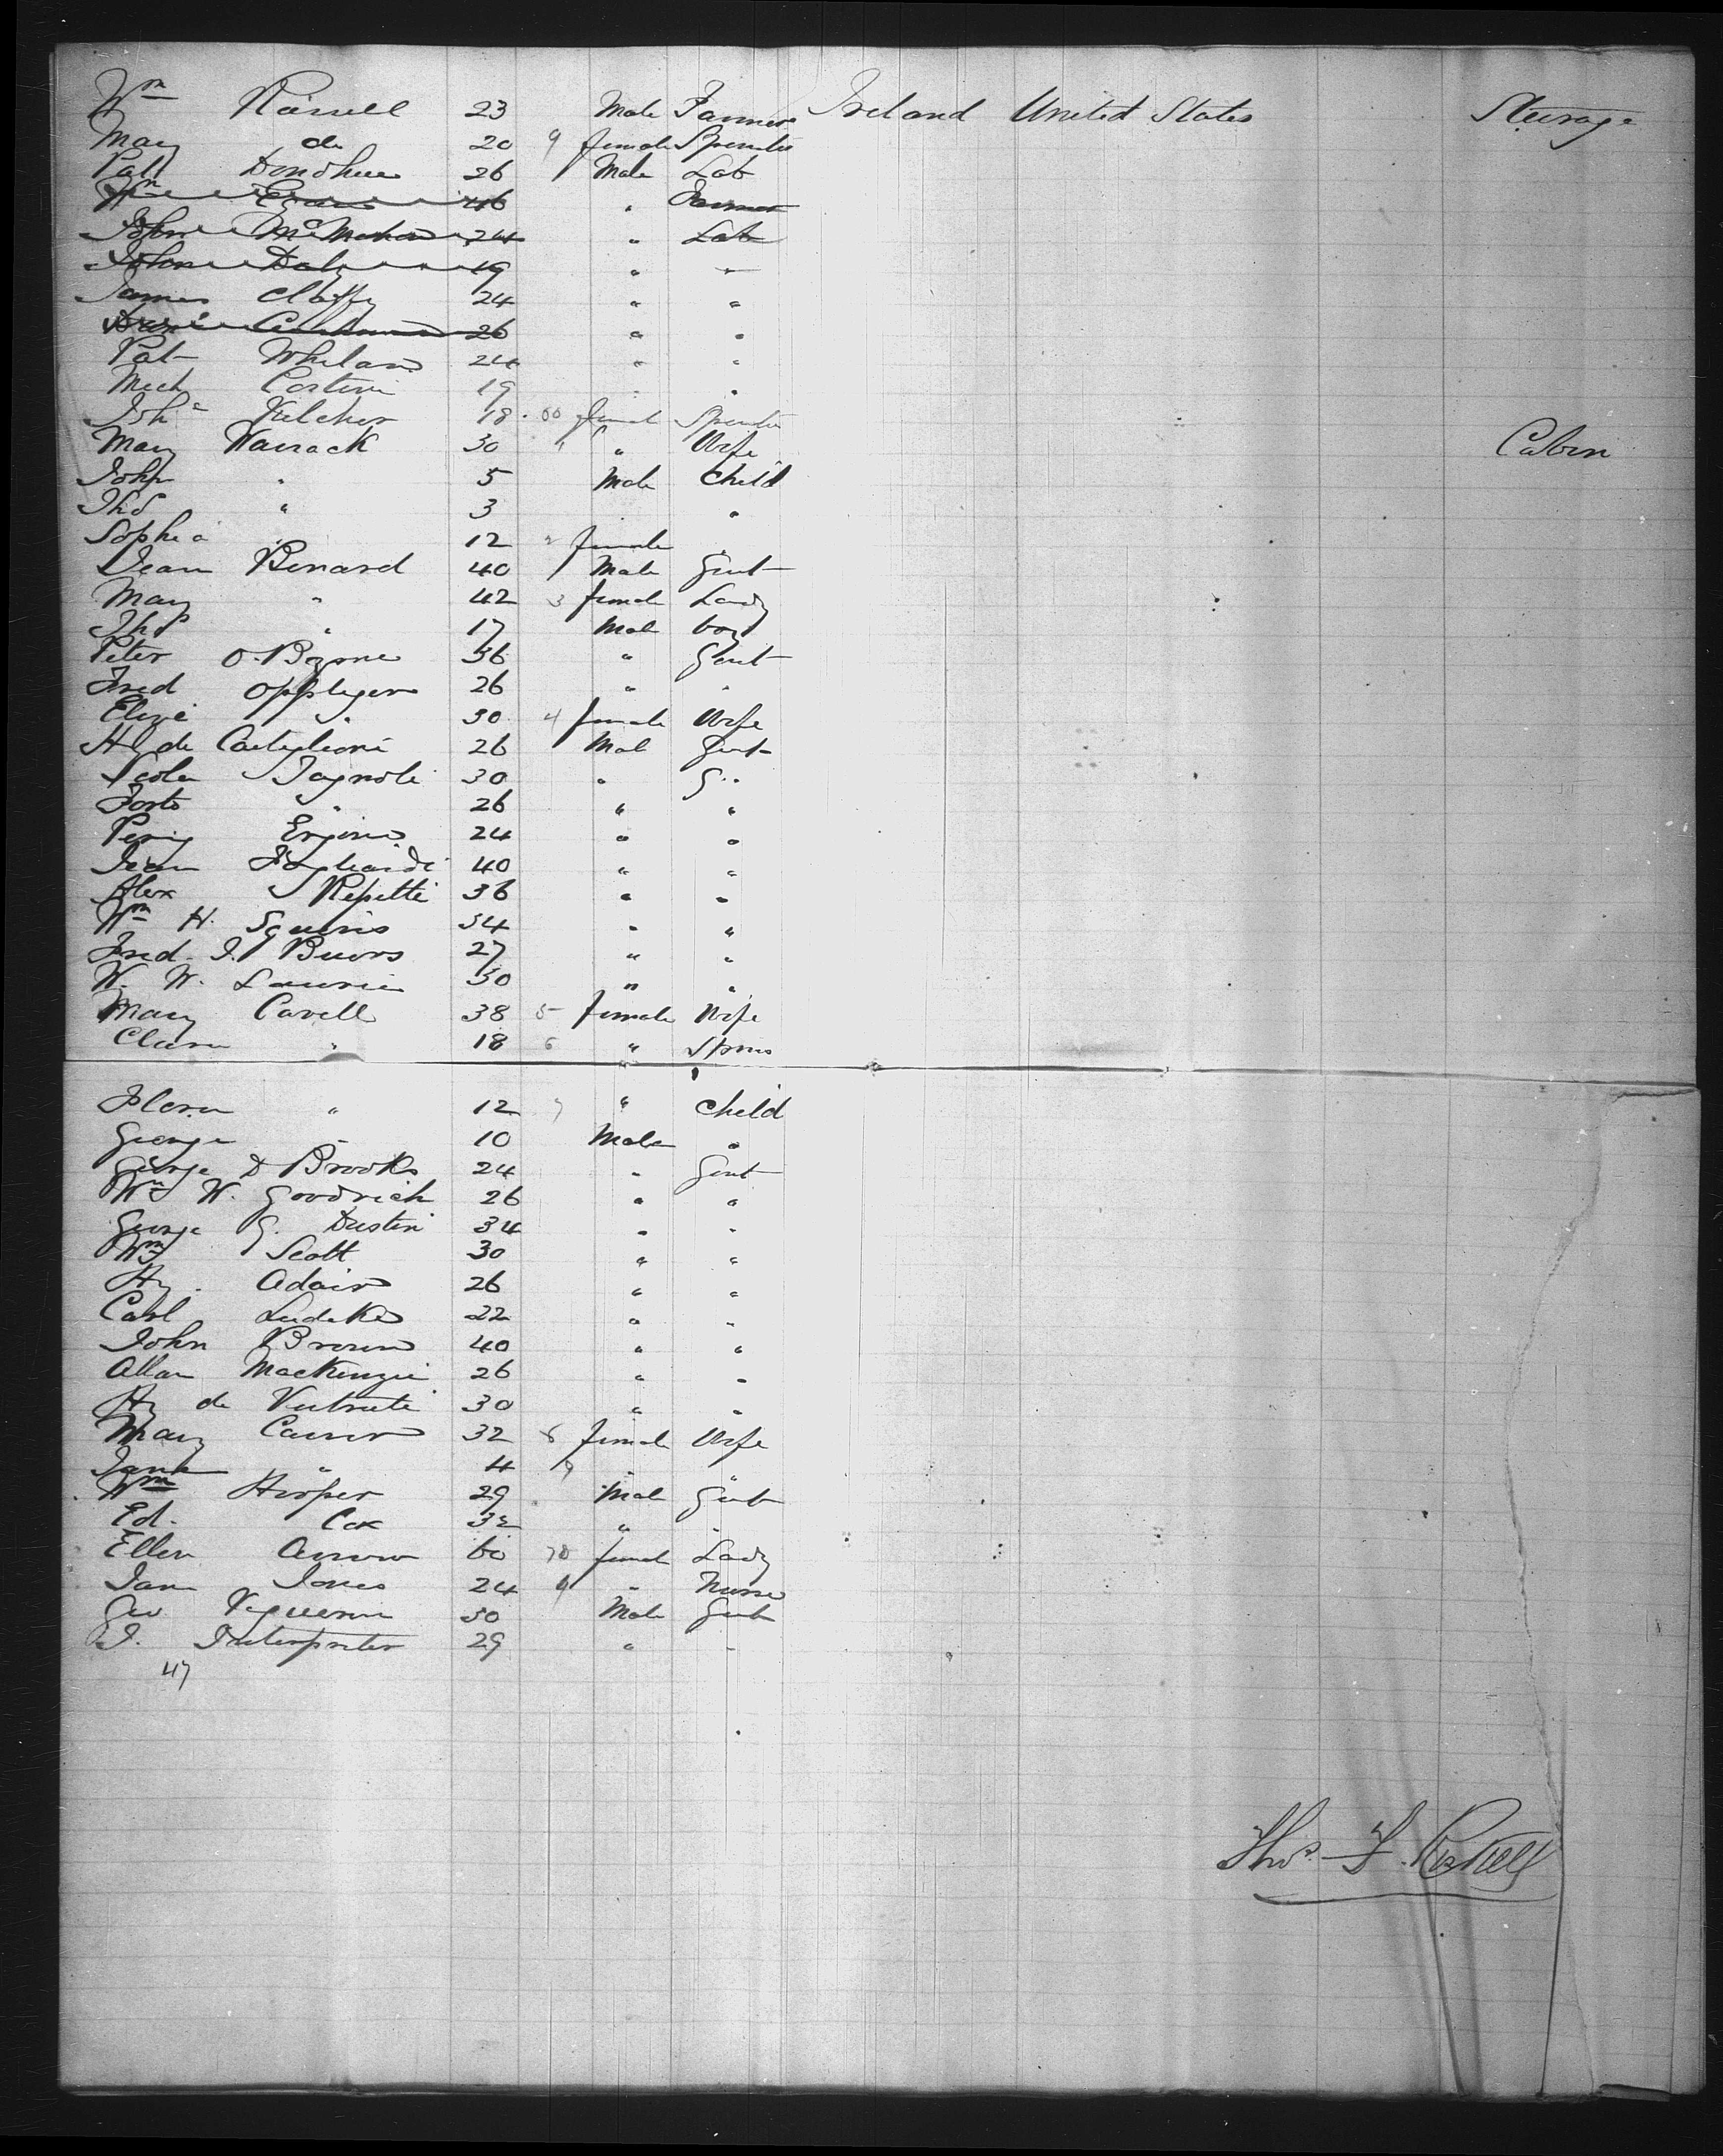 Wm Russell 23 Male Farmer Ireland United States Steerage
Mary do 20 9 female Spinster
Patk Donohue 26 Male Lab
Wm Egan 46 " Farmer
John McMahon 24 " Lab
John Daly 19 " "
James Claffy 24 " "
26 " "
Pat Whelan 24 " "
Mich Costin 19 " "
Joha Kelcher 18 60 female Spinster
Mary Warrack 30 " " Wife Cabin
John " 5 Male Child
Thos " 3 "
Sophia 12 female
Jean Benard 40 Male Gent
Mary " 42 3 female Lady
Thos " 17 Male boy
Peter O. Byrne 36 " Gent
Fred Oppliger 26 " "
Elize " 30 4 female Wife
Hy de Castiglioni 26 Male Gent
Nicola 30 " G "
26 " "
24 " "
Jean 40 " "
Alex Repetti 36 " "
Wm H. Squires 34 " "
Fred. J. Buers 27 " "
W. W. Laurie 30 " "
Mary Cavell 38 5 female Wife
Clara " 18 6 " Spins
Flora " 12 7 " Child
George " 10 Male "
George D Brooks 24 " Gent
Wm W. Goodrich 26 " "
George G. Dustin 34 " "
Wm Scott 30 " "
Hy. Adair 26 " "
Carl Ludeke 22 " "
John Brown 40 " "
Allan Mackenzie 26 " "
Hy de 30 " "
Mary 32 8 female Wife
4 9 " "
Wm Hooper 29 Male Gent
Ed. Cox 32 " "
Ellen 60 70 female Lady
Jane Jones 24 " Nurse
Geo 50 Male Gent
J. Interpreter 29 " "
47
Thos. F.